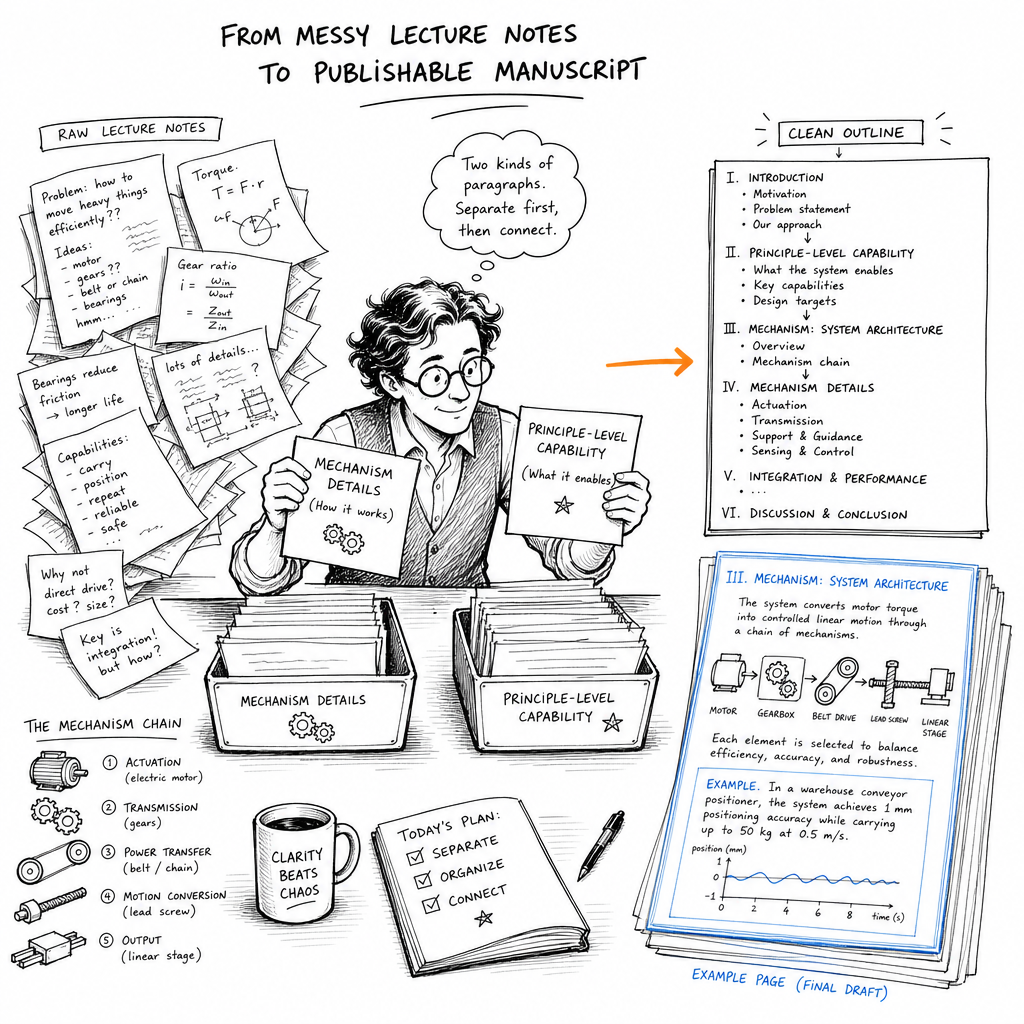 FROM MESSY LECTURE NOTES
TO PUBLISHABLE MANUSCRIPT
RAW LECTURE NOTES
Problem: how to
move heavy things
efficiently??
Ideas:
- motor
- gears??
- belt or chain
- bearings
hmm... ...
Torque.
T = F · r
F
F
Gear ratio
i = ωin / ωout
= Zout / Zin
Bearings reduce
friction
→ longer life
lots of details...
?
Capabilities:
- carry
- position
- repeat
- reliable
- safe
...
Why not
direct drive?
cost? size?
Key is
integration!
but how?
Two kinds of
paragraphs.
Separate first,
then connect.
MECHANISM
DETAILS
(How it works)
PRINCIPLE-LEVEL
CAPABILITY
(What it enables)
MECHANISM DETAILS
PRINCIPLE-LEVEL
CAPABILITY
CLEAN OUTLINE
I. INTRODUCTION
• Motivation
• Problem statement
• Our approach
II. PRINCIPLE-LEVEL CAPABILITY
• What the system enables
• Key capabilities
• Design targets
III. MECHANISM: SYSTEM ARCHITECTURE
• Overview
• Mechanism chain
IV. MECHANISM DETAILS
• Actuation
• Transmission
• Support & Guidance
• Sensing & Control
V. INTEGRATION & PERFORMANCE
• ...
VI. DISCUSSION & CONCLUSION
III. MECHANISM: SYSTEM ARCHITECTURE
The system converts motor torque
into controlled linear motion through
a chain of mechanisms.
MOTOR
GEARBOX
BELT DRIVE
LEAD SCREW
LINEAR
STAGE
Each element is selected to balance
efficiency, accuracy, and robustness.
EXAMPLE. In a warehouse conveyor
positioner, the system achieves 1 mm
positioning accuracy while carrying
up to 50 kg at 0.5 m/s.
position (mm)
1
0
-1
0 2 4 6 8
time (s)
EXAMPLE PAGE (FINAL DRAFT)
THE MECHANISM CHAIN
① ACTUATION
(electric motor)
② TRANSMISSION
(gears)
③ POWER TRANSFER
(belt / chain)
④ MOTION CONVERSION
(lead screw)
⑤ OUTPUT
(linear stage)
CLARITY
BEATS
CHAOS
TODAY'S PLAN:
☑ SEPARATE
☑ ORGANIZE
☑ CONNECT